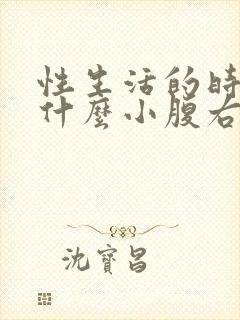 性生活的時
什麼小腹右
沈寶昌